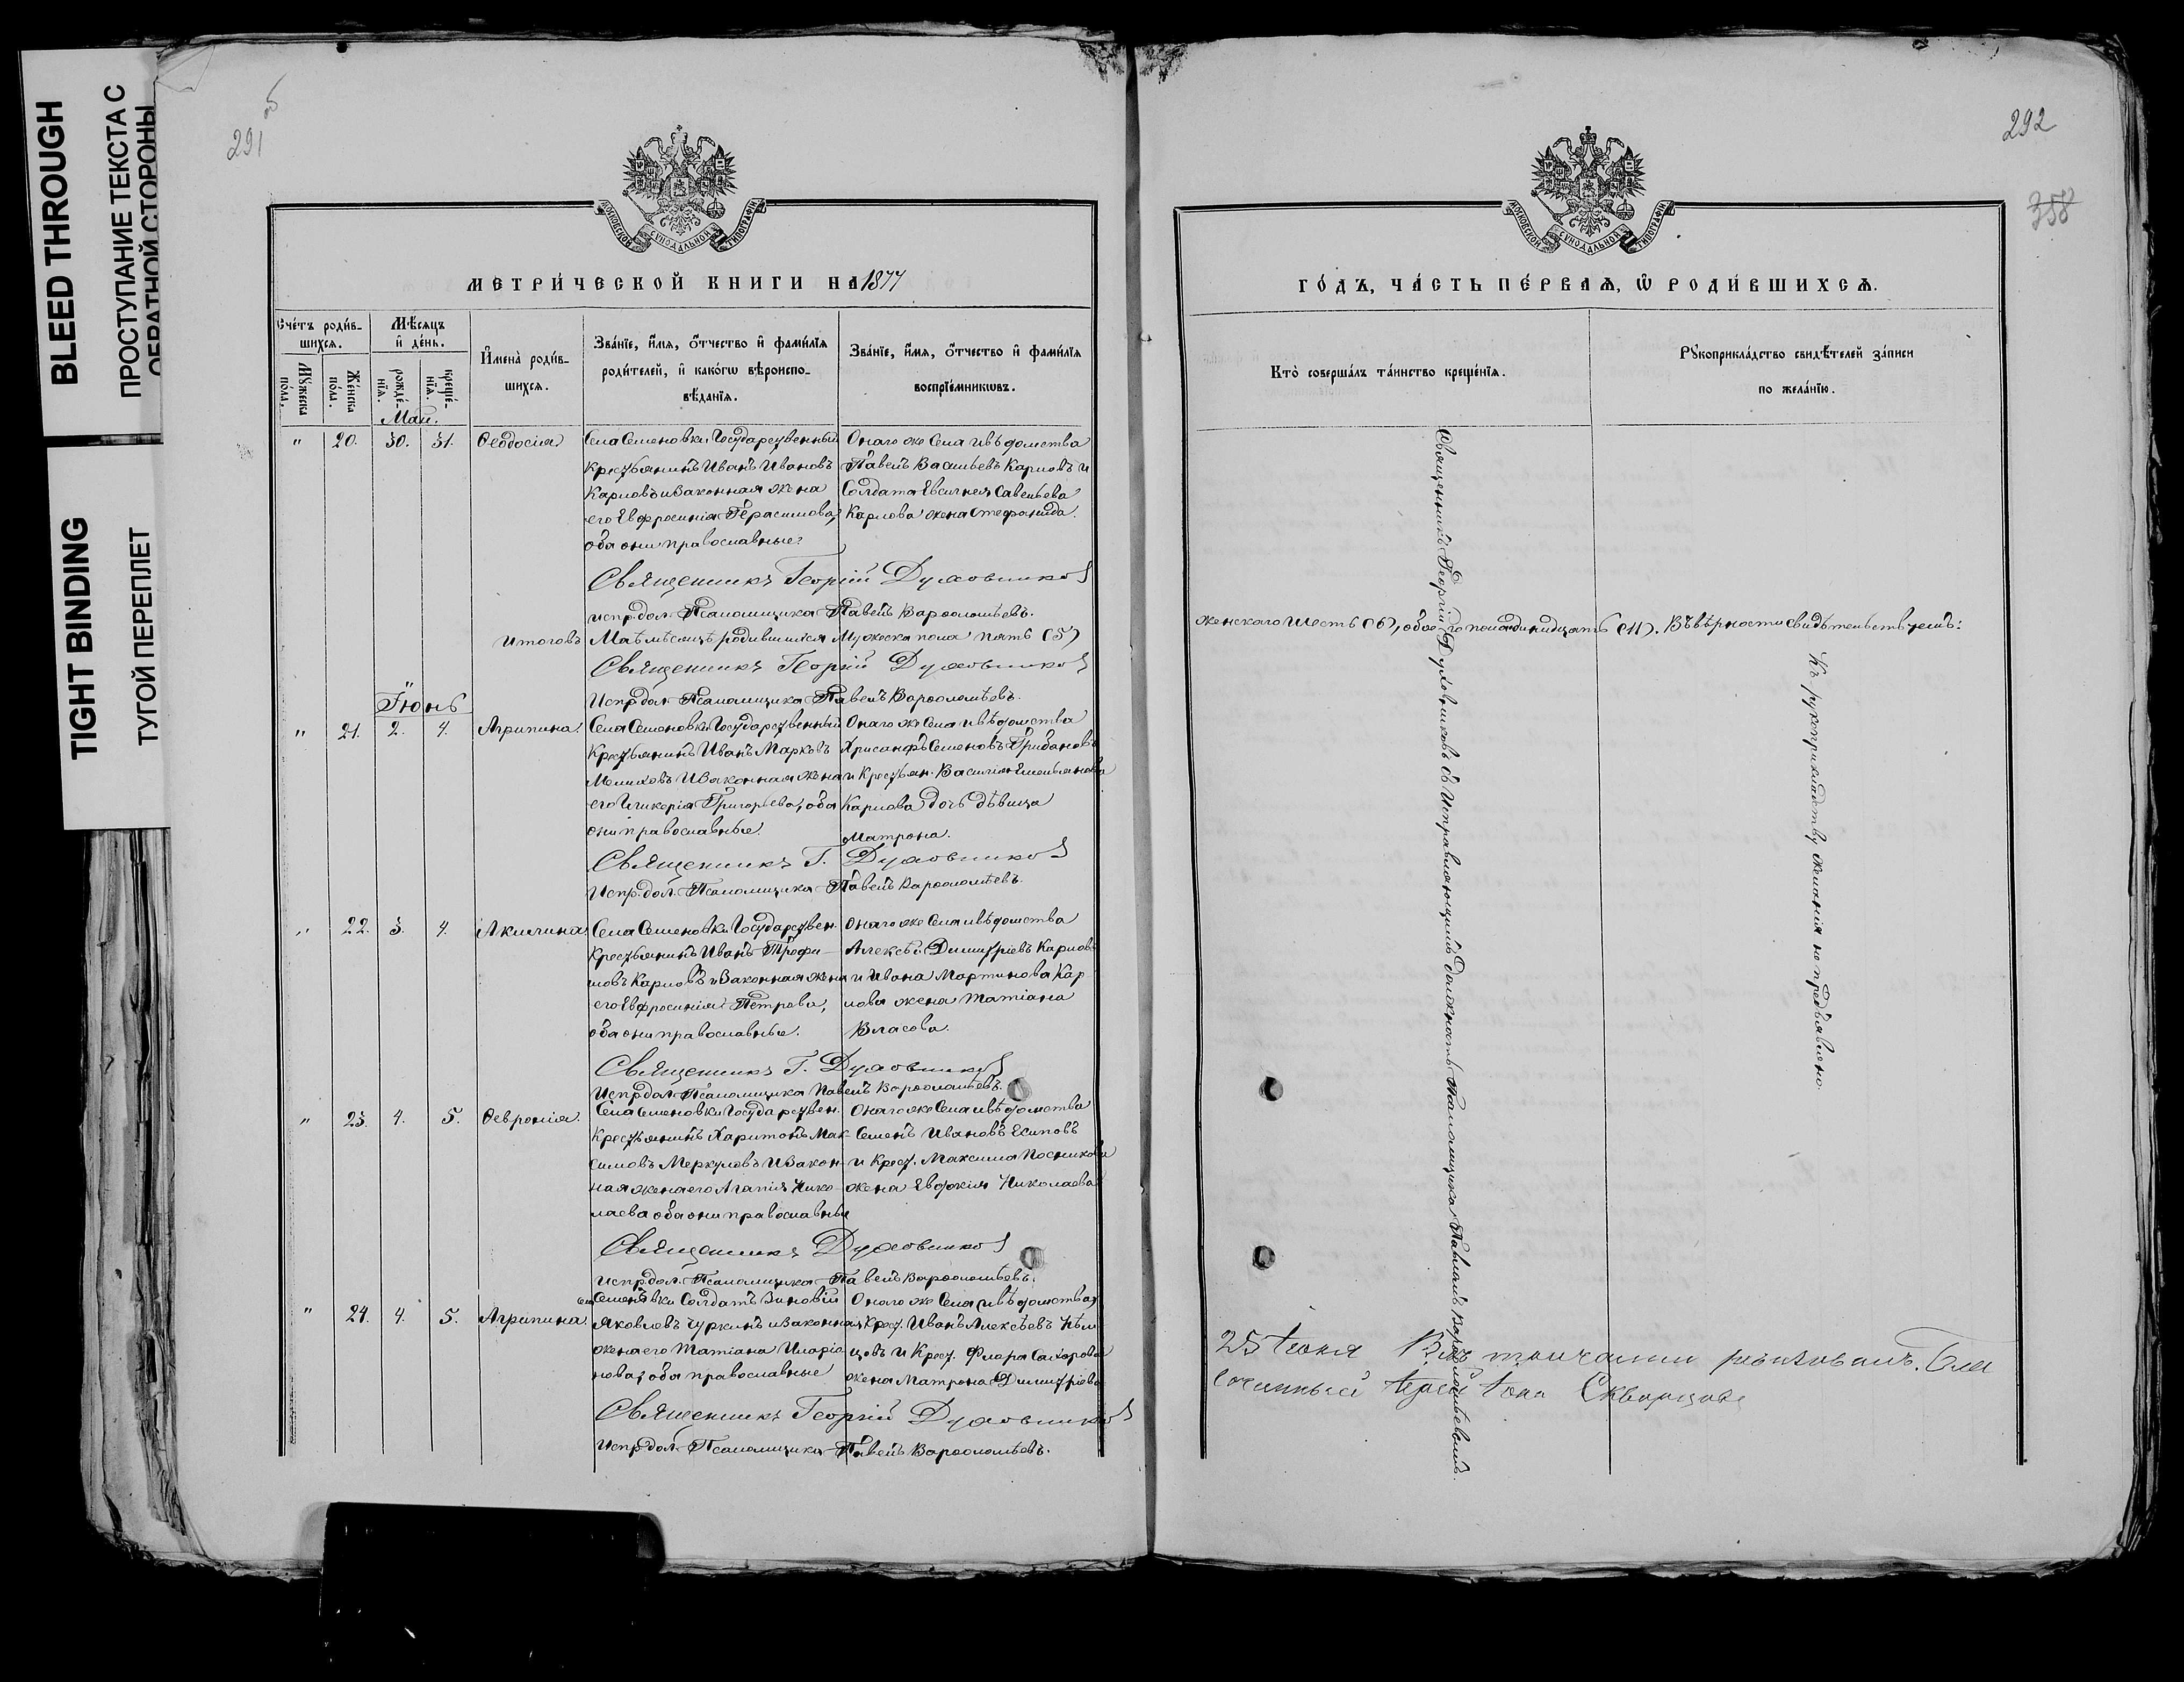 BLEED THROUGH
ПРОСТУПАНИЕ ТЕКСТА С
ОБРАТНОЙ СТОРОНЫ
TIGHT BINDING
ТУГОЙ ПЕРЕПЛЕТ
291 об
МОСКОВСКОЙ СѴНОДАЛЬНОЙ ТИПОГРАФІИ
МЕТРИ́ЧЕСКОЙ КНИГИ НА 1877
Сче́тъ роди́в-
шихсѧ.
Мѣ́сѧцъ
и҆ де́нь.
И҆мена̀ роди́в-
шихсѧ.
Зва́нїе, и҆́мѧ, ѻ҆́тчество и҆ фами́лїѧ
роди́телей, и҆ како́гѡ вѣроиспо-
вѣ́данїѧ.
Зва́нїе, и҆́мѧ, ѻ҆́тчество и҆ фами́лїѧ
воспрїе́мникѡвъ.
Мꙋ́жеска
по́ла.
Же́нска
по́ла.
рожде́-
нїѧ.
креще́-
нїѧ.
Май.
" 20. 30. 31. Ѳеодосія.
Села Семеновки Государственный
Крестьянинъ Иванъ Ивановъ
Карповъ и Законная жена
его Евфросинія Герасимова,
оба они православные.
Онаго же Села и вѣдомства
Павелъ Васильевъ Карповъ и
Солдата Евсигнея Савельева
Карпова жена Стефанида.
Священникъ Георгій Духовниковъ
испр. дол. Псаломщика Павелъ Варѳоломѣевъ.
Итого въ Маѣ мѣсяцѣ родившихся Мужеска пола пять (5)
Священникъ Георгій Духовниковъ
Испр. дол. Псаломщика Павелъ Варѳоломѣевъ.
Іюнь
" 21. 2. 4. Агрипина.
Села Семеновки Государственный
Крестьянинъ Иванъ Марковъ
Мелиховъ и Законная жена
его Гликерія Григорьева, оба
они православные.
Онаго же Села и вѣдомства
Хрисанфъ Семеновъ Грибановъ
и Крестьян. Василія Емельянова
Карпова дочь дѣвица
Матрона.
Священникъ Г. Духовниковъ
Испр. дол. Псаломщика Павелъ Варѳоломѣевъ.
" 22. 3. 4. Акилина.
Села Семеновки Государствен.
Крестьянинъ Иванъ Трофи-
мовъ Карповъ и Законная жена
его Евфросинія Петрова,
оба они православные.
Онаго же Села и вѣдомства
Алексѣй Димитріевъ Карповъ
и Ивана Мартинова Кар-
пова жена Татіана
Власова.
Священникъ Г. Духовниковъ
Испр. дол. Псаломщика Павелъ Варѳоломѣевъ.
" 23. 4. 5. Ѳевронія.
Села Семеновки Государствен.
Крестьянинъ Харитонъ Мак-
симовъ Меркуловъ и Закон-
ная жена его Агапія Нико-
лаева оба они православные
Онаго же Села и вѣдомства
Семенъ Ивановъ Есиповъ
и Крест. Максима Посникова
жена Евдокія Николаева
Священникъ Духовниковъ
Испр. дол. Псаломщика Павелъ Варѳоломѣевъ.
" 24. 4. 5. Агрипина.
села Семеновки Солдатъ Зиновій
Яковлевъ Чуркинъ и Законная
жена его Татіана Иларіо-
нова, оба православные
Онаго же Села (и вѣдомства)
Крест. Иванъ Алексѣевъ Нѣм-
цовъ и Крест. Флора Сахарова
жена Матрона Димитріева
Священникъ Георгій Духовниковъ
Испр. дол. Псаломщика Павелъ Варѳоломѣевъ.
292
358
МОСКОВСКОЙ СѴНОДАЛЬНОЙ ТИПОГРАФІИ
ГО́ДЪ, ЧА́СТЬ ПЕ́РВАѦ, Ѡ҆ РОДИ́ВШИХСѦ.
Кто̀ соверша́лъ та́инство креще́нїѧ.
Рꙋкоприкла́дство свидѣ́телей за́писи
по жела́нїю.
Священникъ Георгій Духовниковъ съ Исправляющимъ должность Псаломщика Павломъ Варѳоломѣевымъ.
женскаго шесть (6), обоего пола одинадцать (11). Въ вѣрности свидѣтельствуемъ:
Къ рукоприкладству желанія не предъявлено.
25 Іюня
Скворцовъ